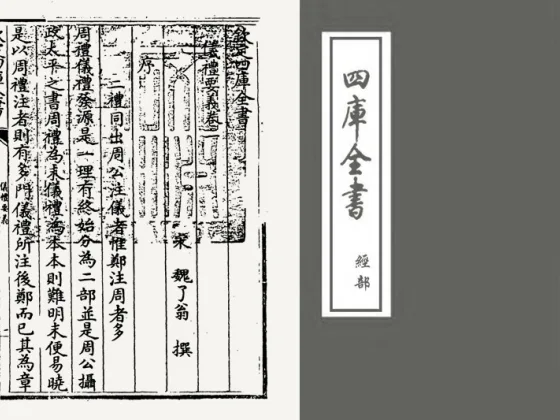 四庫全書
經部
欽定四庫全書
儀禮要義卷一
宋 魏了翁 撰
序
二禮同出周公注儀者惟鄭注周者多
周禮儀禮發源是一理有終始分為二部並是周公攝
政太平之書周禮為末儀禮為本本則難明末便易曉
是以周禮注者則有多門儀禮所注後鄭而已其為章
儀禮要義